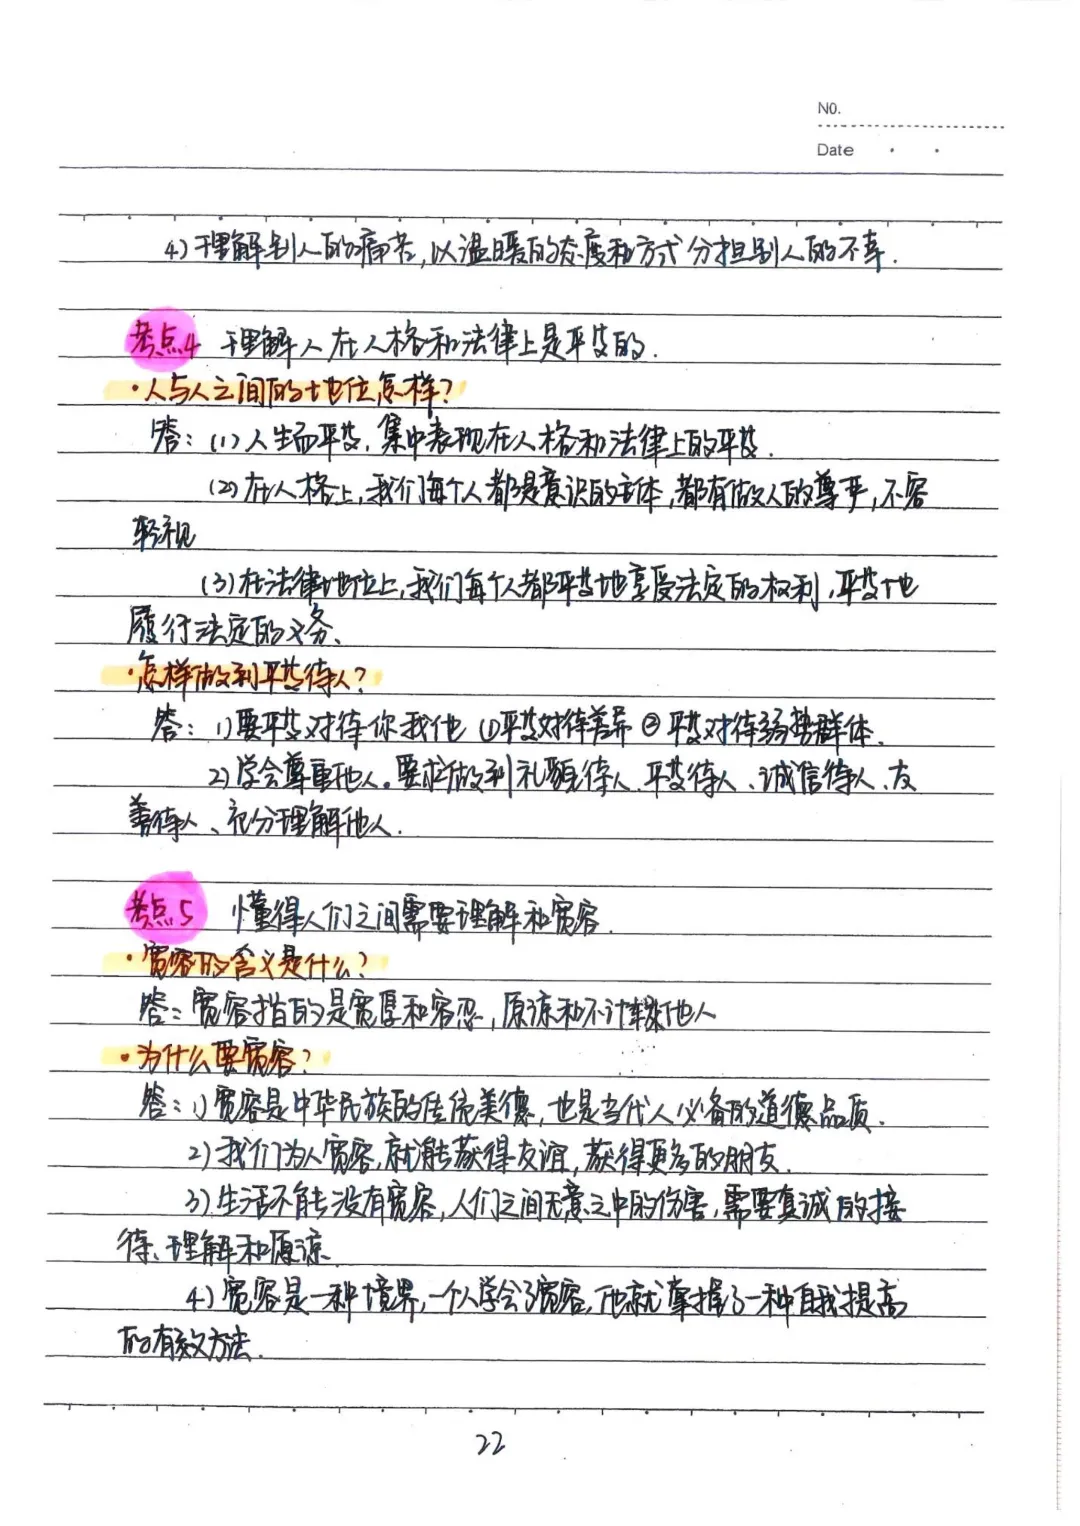 NO.
Date
4)理解别人的痛苦,以温暖的态度和方式分担别人的不幸.
考点4 理解人在人格和法律上是平等的.
·人与人之间的地位怎样?
答:(1)人生而平等,集中表现在人格和法律上的平等.
(2)在人格上,我们每个人都是意识的主体,都有做人的尊严,不容
轻视
(3)在法律地位上,我们每个人都平等地享受法定的权利,平等地
履行法定的义务、
·怎样做到平等待人?
答:1)要平等对待你我他 ①平等对待差异 ②平等对待弱势群体.
2)学会尊重他人。要求做到礼貌待人、平等待人、诚信待人、友
善待人、充分理解他人.
考点5 懂得人们之间需要理解和宽容.
·宽容的含义是什么?
答:宽容指的是宽厚和容忍,原谅和不计较他人
·为什么要宽容?
答:1)宽容是中华民族的传统美德,也是当代人必备的道德品质.
2)我们为人宽容,就能获得友谊,获得更多的朋友.
3)生活不能没有宽容,人们之间无意之中的伤害,需要真诚的接
待、理解和原谅.
4)宽容是一种境界,一个人学会了宽容,他就掌握了一种自我提高
的有效方法.
22